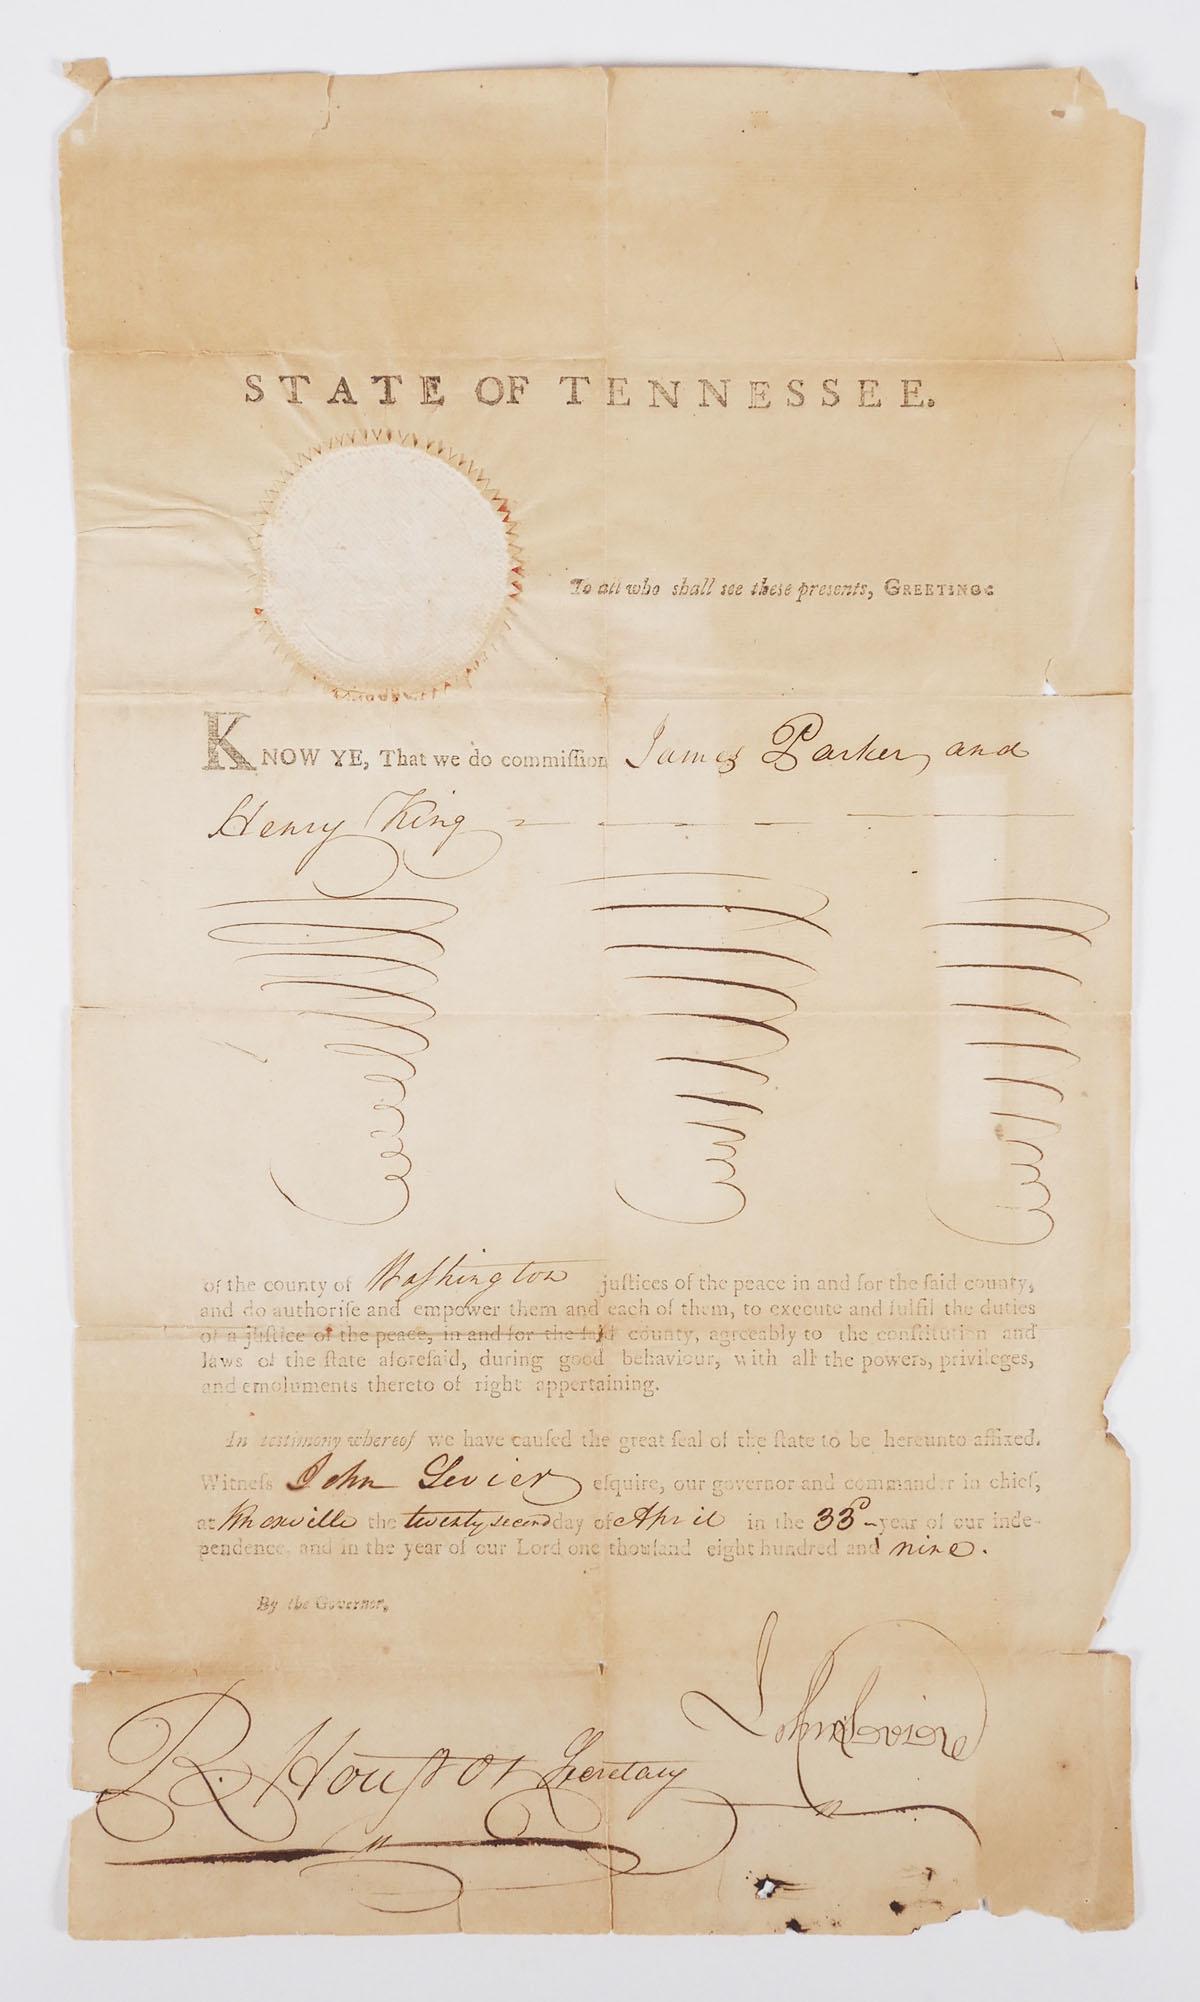 STATE OF TENNESSEE.
To all who shall see these presents, GREETING:
KNOW YE, That we do commiſſion James Parker, and
Henry King
of the county of Waſhington juſtices of the peace in and for the ſaid county,
and do authoriſe and empower them and each of them, to execute and fulfil the duties
of a juſtice of the peace, in and for the ſaid county, agreeably to the conſtitution and
laws of the ſtate aforeſaid, during good behaviour, with all the powers, privileges,
and emoluments thereto of right appertaining.
In testimony whereof we have cauſed the great ſeal of the ſtate to be hereunto affixed.
Witneſs John Sevier eſquire, our governor and commander in chief,
at Knoxville the twenty second day of April in the 33d year of our inde-
pendence, and in the year of our Lord one thouſand eight hundred and nine.
By the Governor,
John Sevier
R. Houſton Secretary